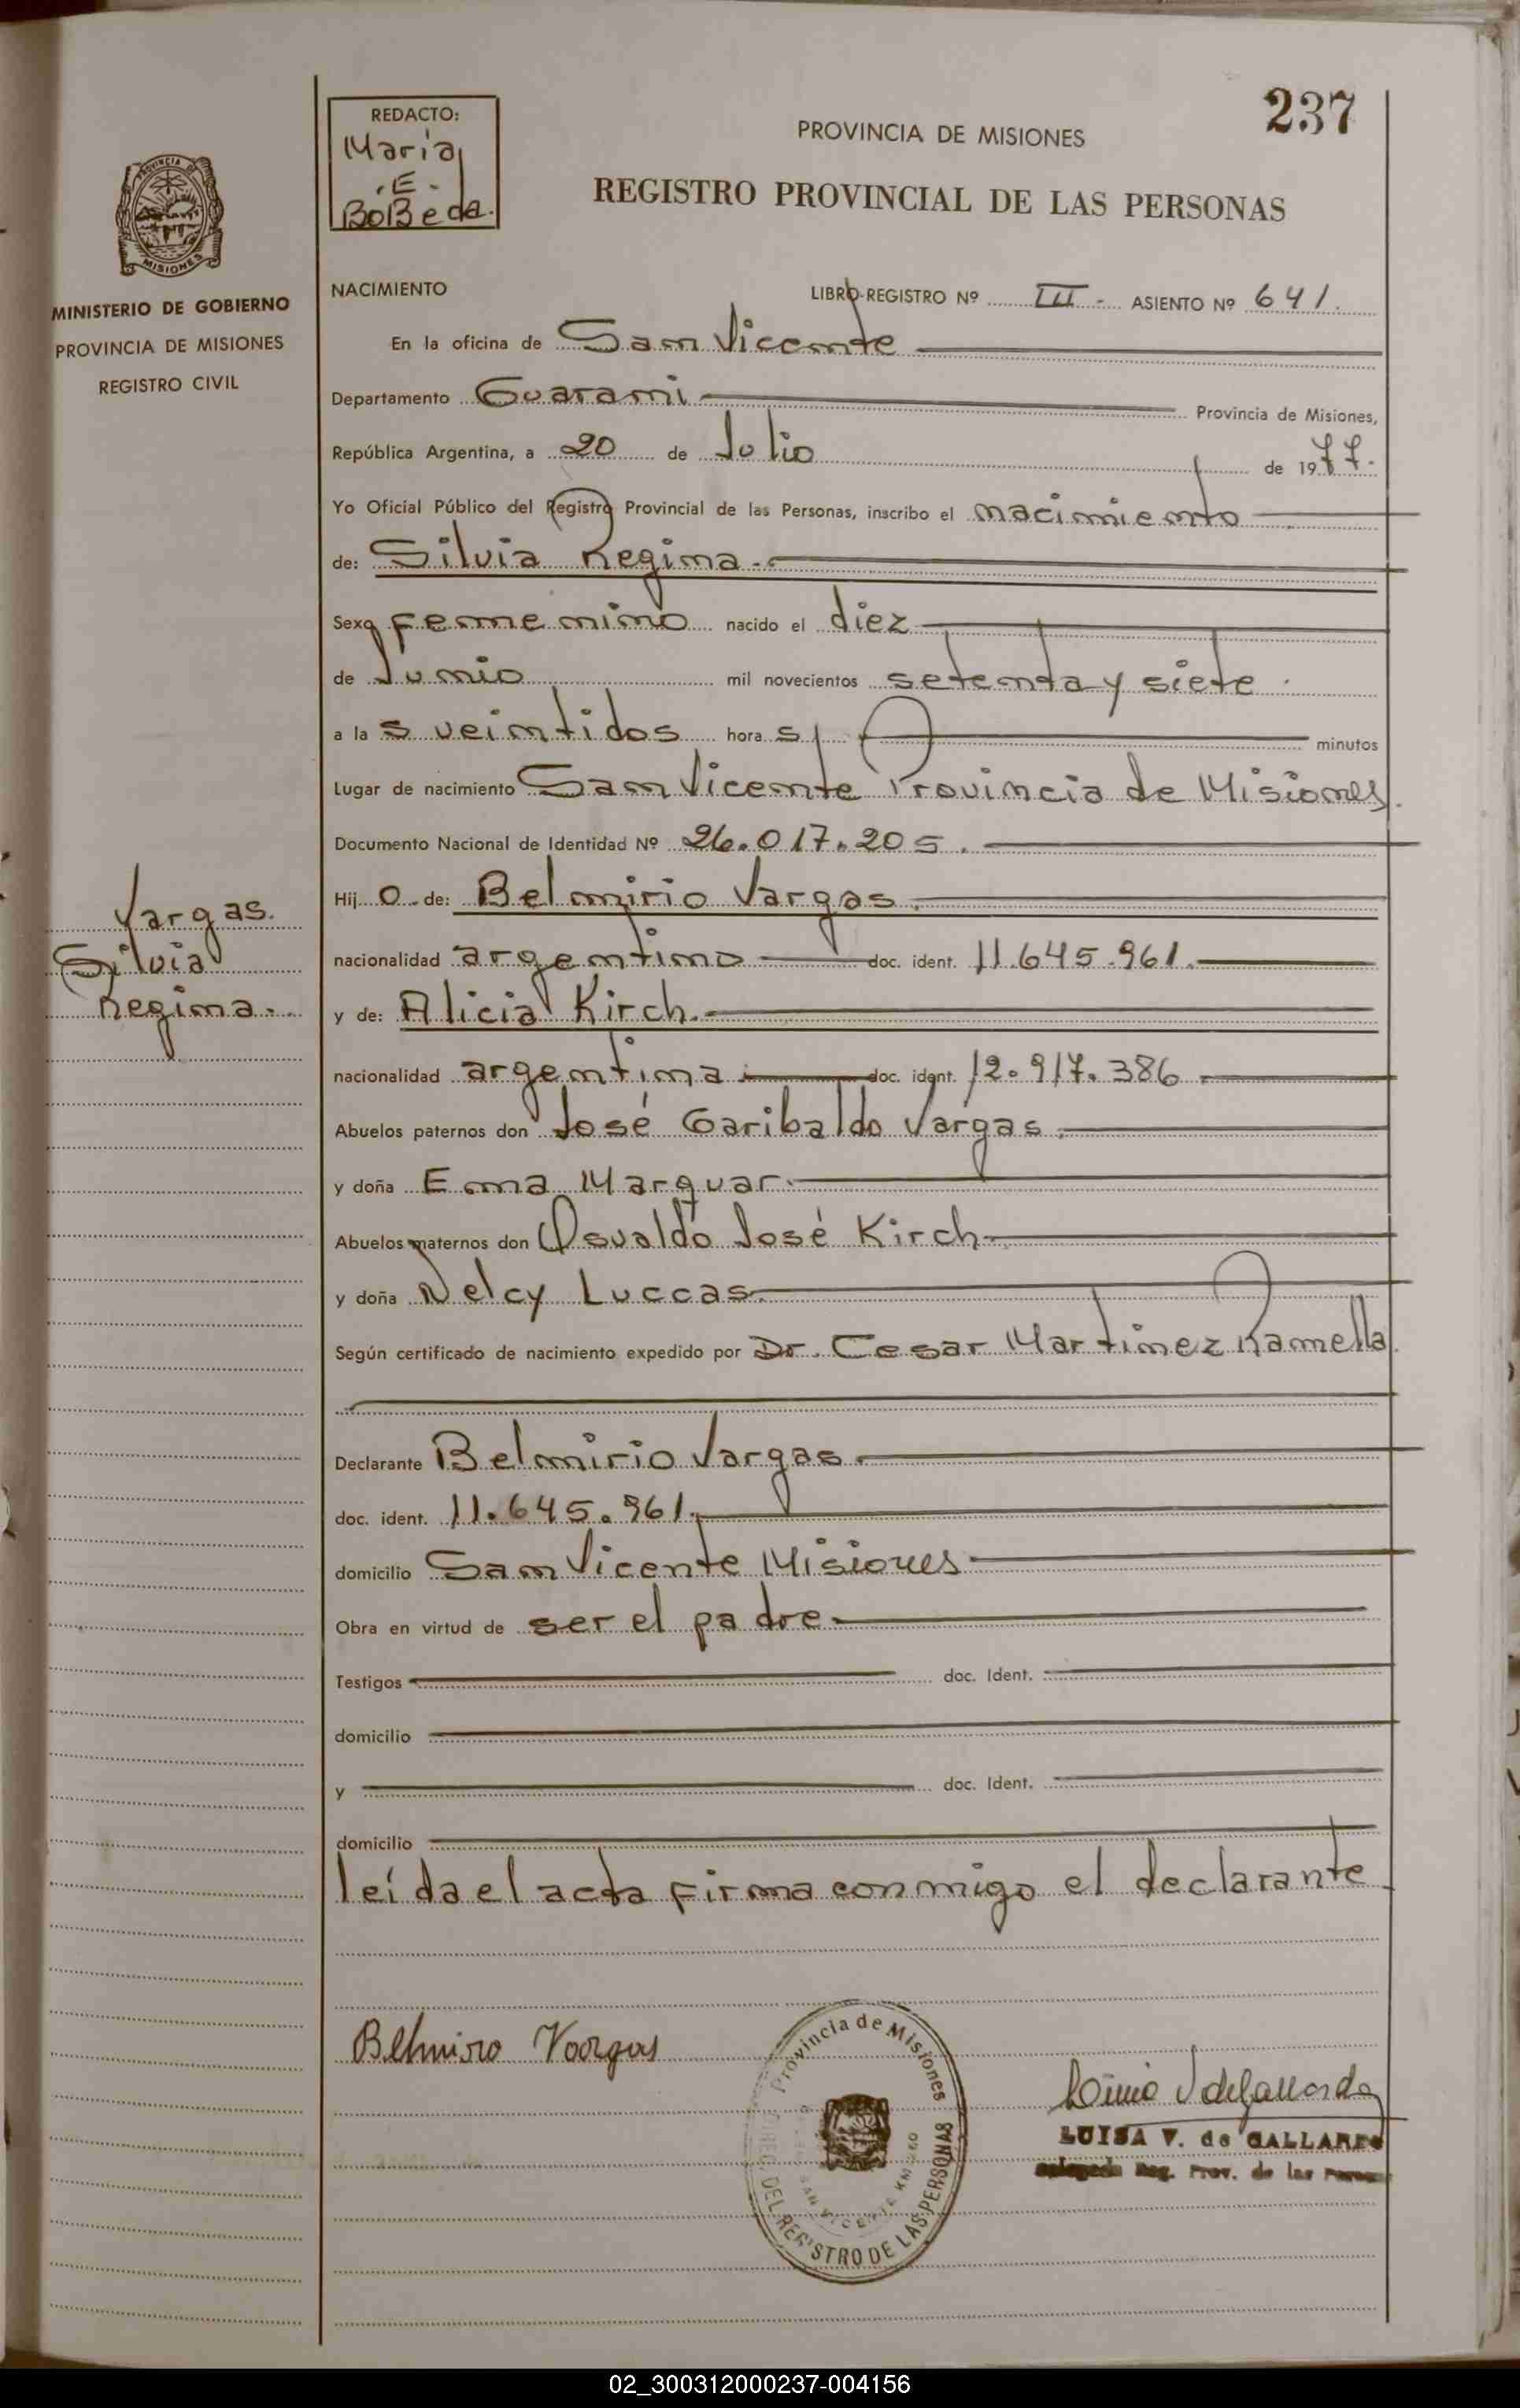 237
REDACTO:
Maria
E.
BoBeda.
PROVINCIA DE MISIONES
REGISTRO PROVINCIAL DE LAS PERSONAS
PROVINCIA DE
MISIONES
MINISTERIO DE GOBIERNO
PROVINCIA DE MISIONES
REGISTRO CIVIL
NACIMIENTO
LIBRO-REGISTRO Nº III - ASIENTO Nº 641.
En la oficina de San Vicente
Departamento Guarani Provincia de Misiones,
República Argentina, a 20 de Julio de 1977.
Yo Oficial Público del Registro Provincial de las Personas, inscribo el nacimiento
de: Silvia Regina.-
Sexo femenino nacido el diez
de Junio mil novecientos setenta y siete.
a la s veintidos hora s/ minutos
Lugar de nacimiento San Vicente Provincia de Misiones.
Documento Nacional de Identidad Nº 26.017.205.
Hij o de: Belmirio Vargas.
nacionalidad argentino doc. ident. 11.645.961.
y de: Alicia Kirch.
nacionalidad argentina doc. ident. 12.917.386
Abuelos paternos don José Garibaldo Vargas.
y doña Ema Marquar.
Abuelos maternos don Osvaldo José Kirch
y doña Nelcy Luccas.
Según certificado de nacimiento expedido por Dr. Cesar Martinez Ramella.
Declarante Belmirio Vargas.
doc. ident. 11.645.961.
domicilio San Vicente Misiones
Obra en virtud de ser el padre.
Testigos doc. Ident.
domicilio
y doc. Ident.
domicilio
leída el acta firma conmigo el declarante
Vargas.
Silvia
Regina.
Belmiro Vargas
Provincia de Misiones
DIREC. DEL REGISTRO DE LAS PERSONAS
SAN VICENTE KM
LUISA V. de GALLARDO
Delegada Reg. Prov. de las Personas
02_300312000237-004156